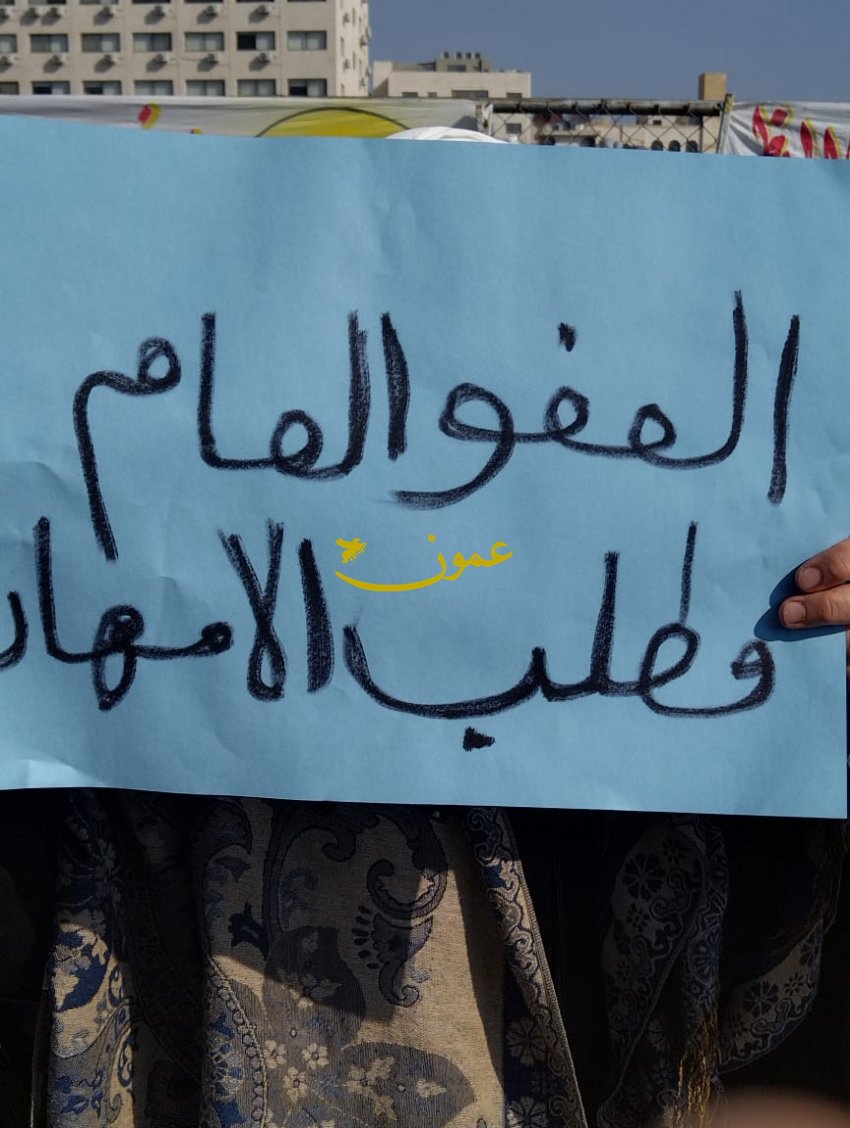 العفو العام
عمون
مطلب الامهات